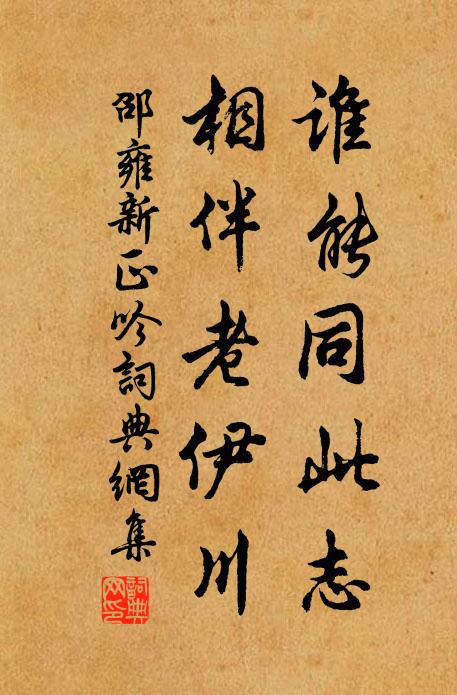 誰能同此志
相伴老伊川
邵雍新正吟詞典網集
詞典網印